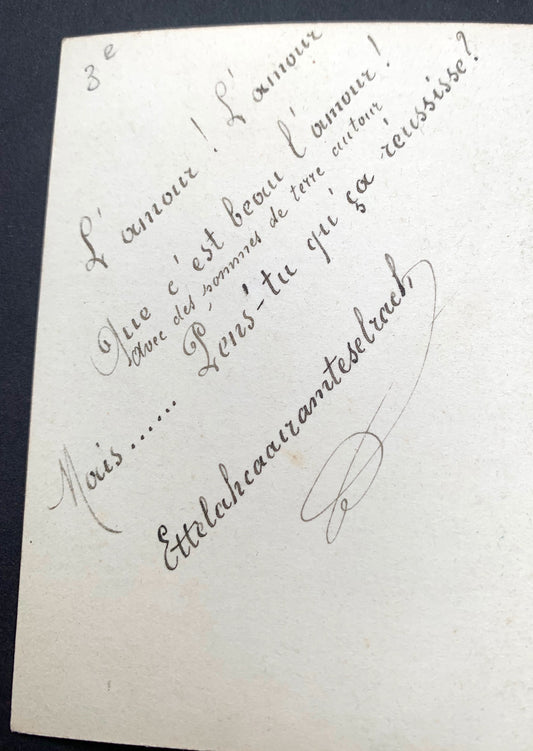 3e
L'amour ! L'amour
Que c'est beau l'amour !
avec des pommes de terre autour
Mais...... Pens'-tu qu'ça réussisse ?
Ettelahcaairamteselrach